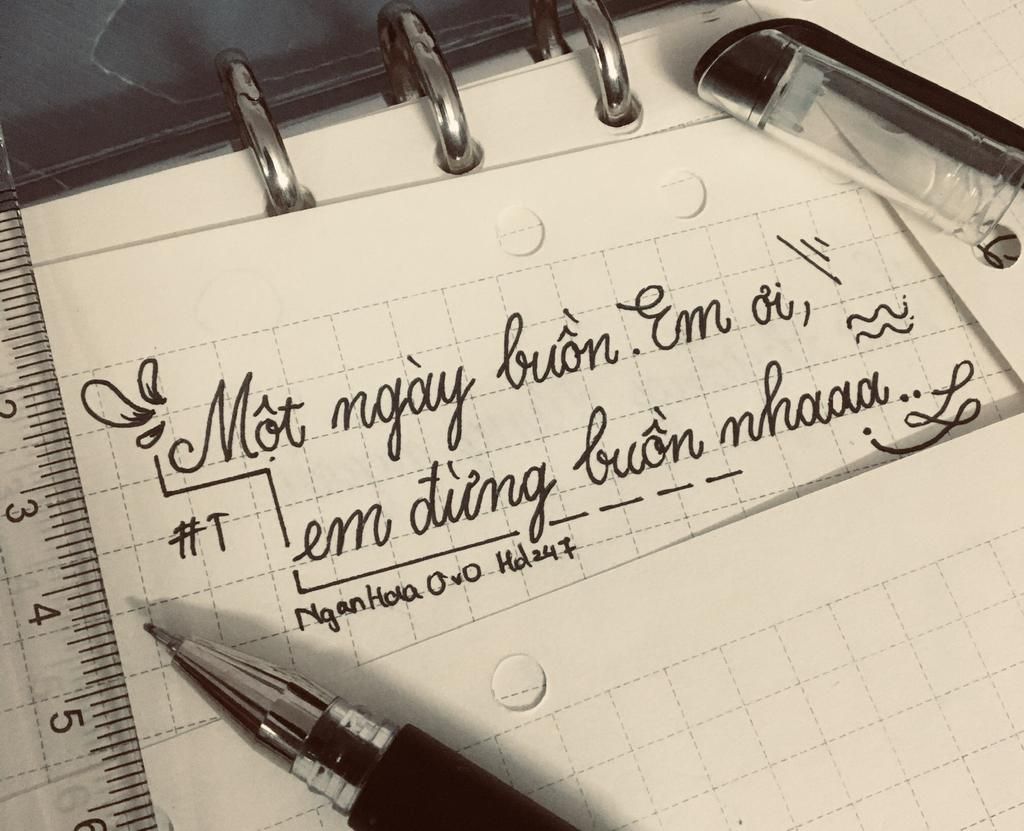 Một ngày buồn. Em ơi,
em đừng buồn nhaaa..
#T
NganHoa OvO Hd247
2
3
4
5
6